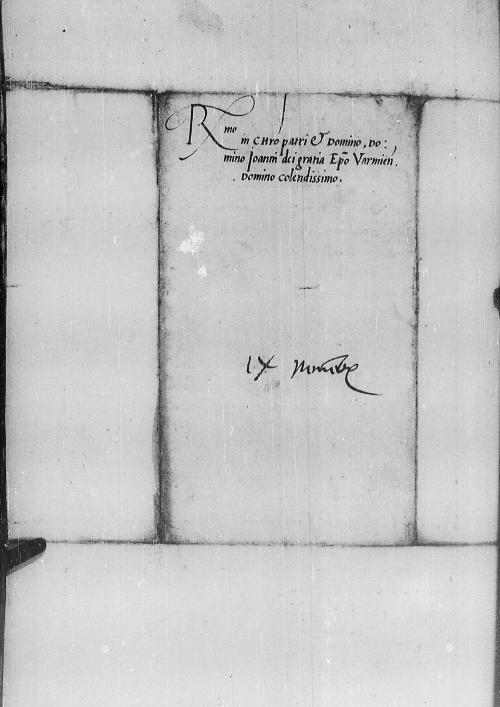 Rmo
in CHro patri & Domino, Do:
mino Joanni dei gratia Epo Varmien,
Domino colendissimo.
IX